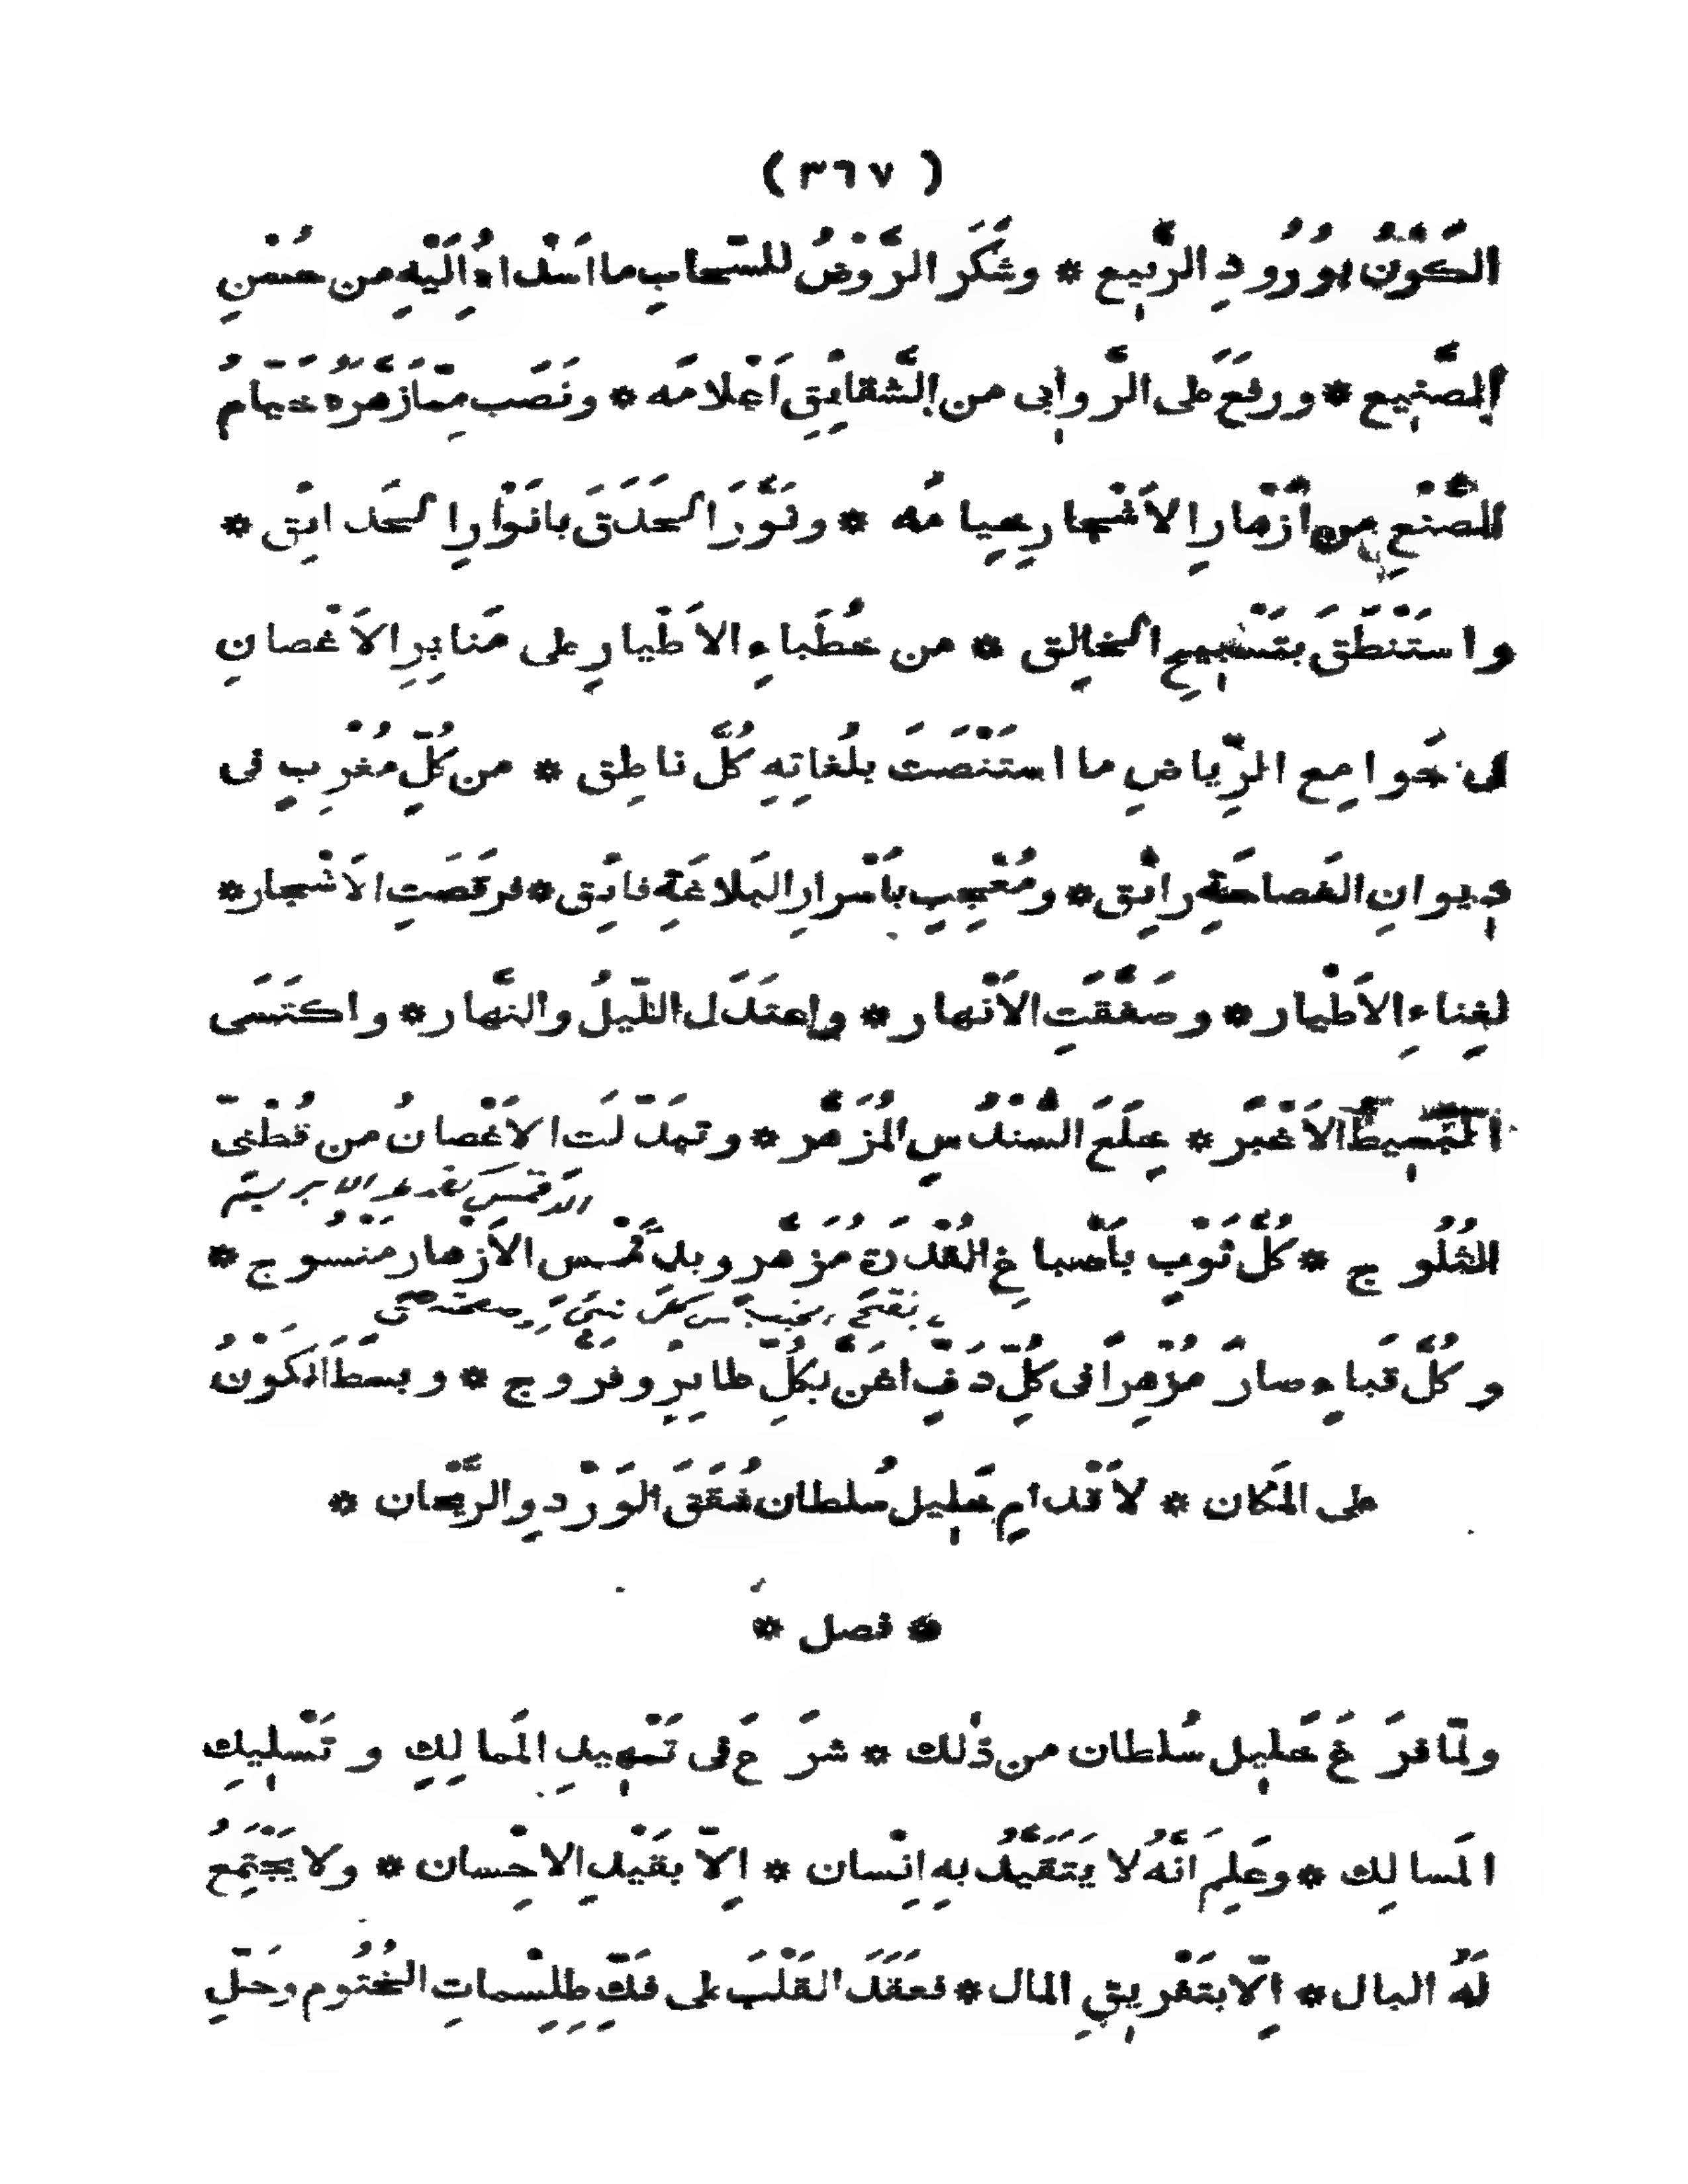 ( ٣٦٧ )
الكَوْنُ بِوُرُودِ الرَّبِيع * وشَكَر الرَّوْضُ للسّحابِ ما اَسْداهُ اِلَيْهِ من حُسْنِ
الصَّنِيع * ورفَعَ على الرَّوابى من الشَّقايِقِ اَعْلامَه * ونَصَب مِمّا زَهَّرهُ خيّامُ
الصُّنْعِ من اَزْهارِ الاَشْجارِ خِيامَه * ونَوَّرَ الحَدَقَ بانَوْارِ الحَدايِق *
واسْتَنْطَقَ بتَسْبِيحِ الخالِق * من خُطَباءِ الاَطْيارِ على مَنابِرِ الاَغْصانِ
فى جَوامِع الرِّياضِ ما اسْتَنْصَتَ بلُغاتِهِ كُلَّ ناطِق * من كُلِّ مُغْرِبٍ فى
دِيوانِ الفَصاحَةِ رايِق * ومُعْجِبٍ بِاَسْرارِ البَلاغَةِ فايِق * فرقَصَتِ الاَشْجار *
لِغِناءِ الاَطْيار * وصَفَّقَتِ الاَنْهار * واعتَدَل اللّيلُ والنَّهار * واكتَسَى
البَسِيطُ الاَغْبَر * خِلَعَ السُّنْدُسِ المُزَهَّر * وتبَدّلَت الاَغْصانُ من قُطْنِىّ
الثُلُوج * كُلَّ ثَوْبٍ بِاَصْباغِ القُدْرَةِ مُزَهَّرٍ وبدِمَقْسِ الاَزْهارِ مَنْسُوج *
وكُلَّ قَباءٍ صارَ مُزْهِراً فى كُلِّ دَفٍّ اغَنَّ بكُلِّ طايِرٍ وفَرُّوج * وبسَطَ الكَوْنُ
على المَكان * لاَقْدامِ خَلِيل سُلطان شُقَقَ الوَرْدِ والرَّيْحان *
* فصل *
ولمّا فرَغَ خَلِيل سُلطان من ذٰلك * شرَعَ فى تَمْهِيدِ المَمالِكِ وتَسْلِيكِ
المَسالِك * وعَلِمَ اَنَّهُ لا يَتَقَيَّدُ بهِ اِنْسان * اِلاّ بقَيْدِ الاِحْسان * ولا يَجْتَمِعُ
لَهُ البال * اِلّا بتَفْرِيقِ المال * فعَقَدَ القَلْبَ على فَكِّ طِلِسْماتِ الخُتُومِ وحَلِّ